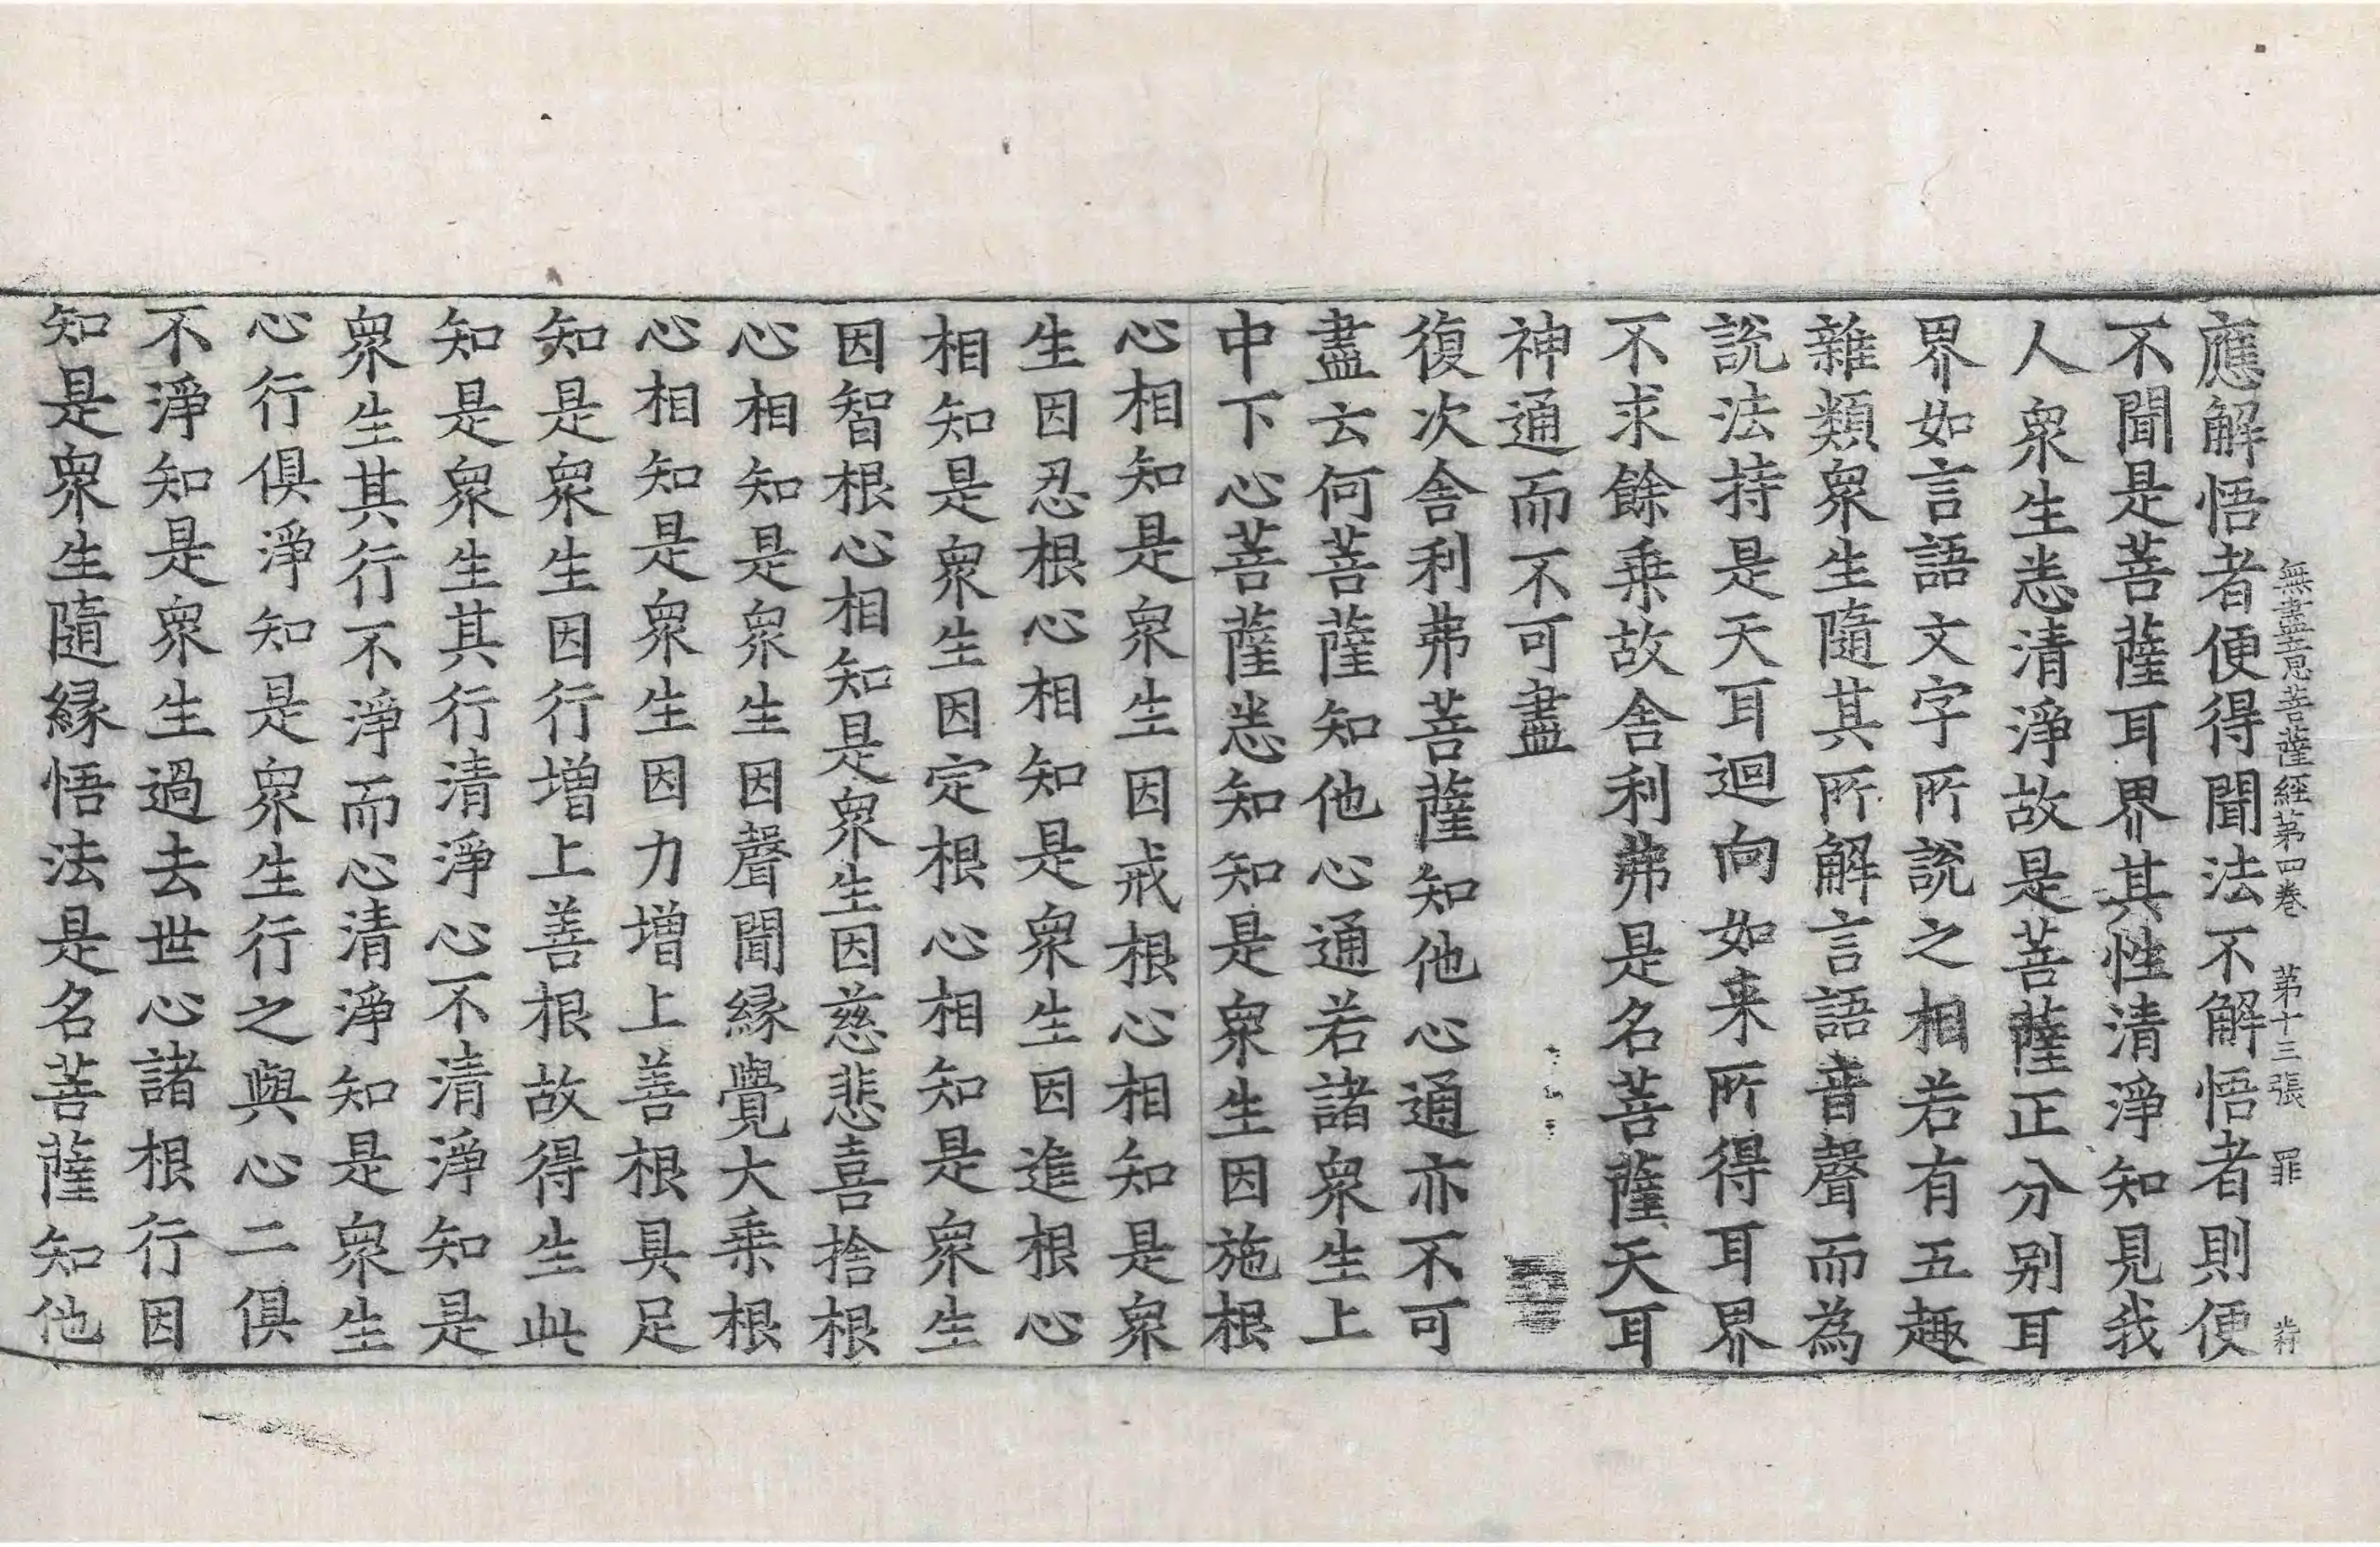 無盡意菩薩經第四卷　第十三張　罪
應解悟者便得聞法不解悟者則便
不聞是菩薩耳界其性清淨知見我
人衆生悉清淨故是菩薩正分别耳
界如言語文字所說之相若有五趣
雜類衆生隨其所解言語音聲而為
說法持是天耳迴向如来所得耳界
不求餘乗故舎利弗是名菩薩天耳
神通而不可盡
復次舎利弗菩薩知他心通亦不可
盡云何菩薩知他心通若諸衆生上
中下心菩薩悉知知是衆生因施根
心相知是衆生因戒根心相知是衆
生因忍根心相知是衆生因進根心
相知是衆生因定根心相知是衆生
因智根心相知是衆生因慈悲喜捨根
心相知是衆生因聲聞縁覺大乗根
心相知是衆生因力增上善根具足
知是衆生因行增上善根故得生此
知是衆生其行清淨心不清淨知是
衆生其行不淨而心清淨知是衆生
心行俱淨知是衆生行之與心二俱
不淨知是衆生過去世心諸根行因
知是衆生隨縁悟法是名菩薩知他